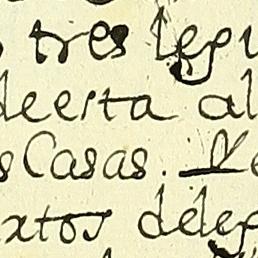 tres legu
deesta al
s Casas. Ye
xtos deleg